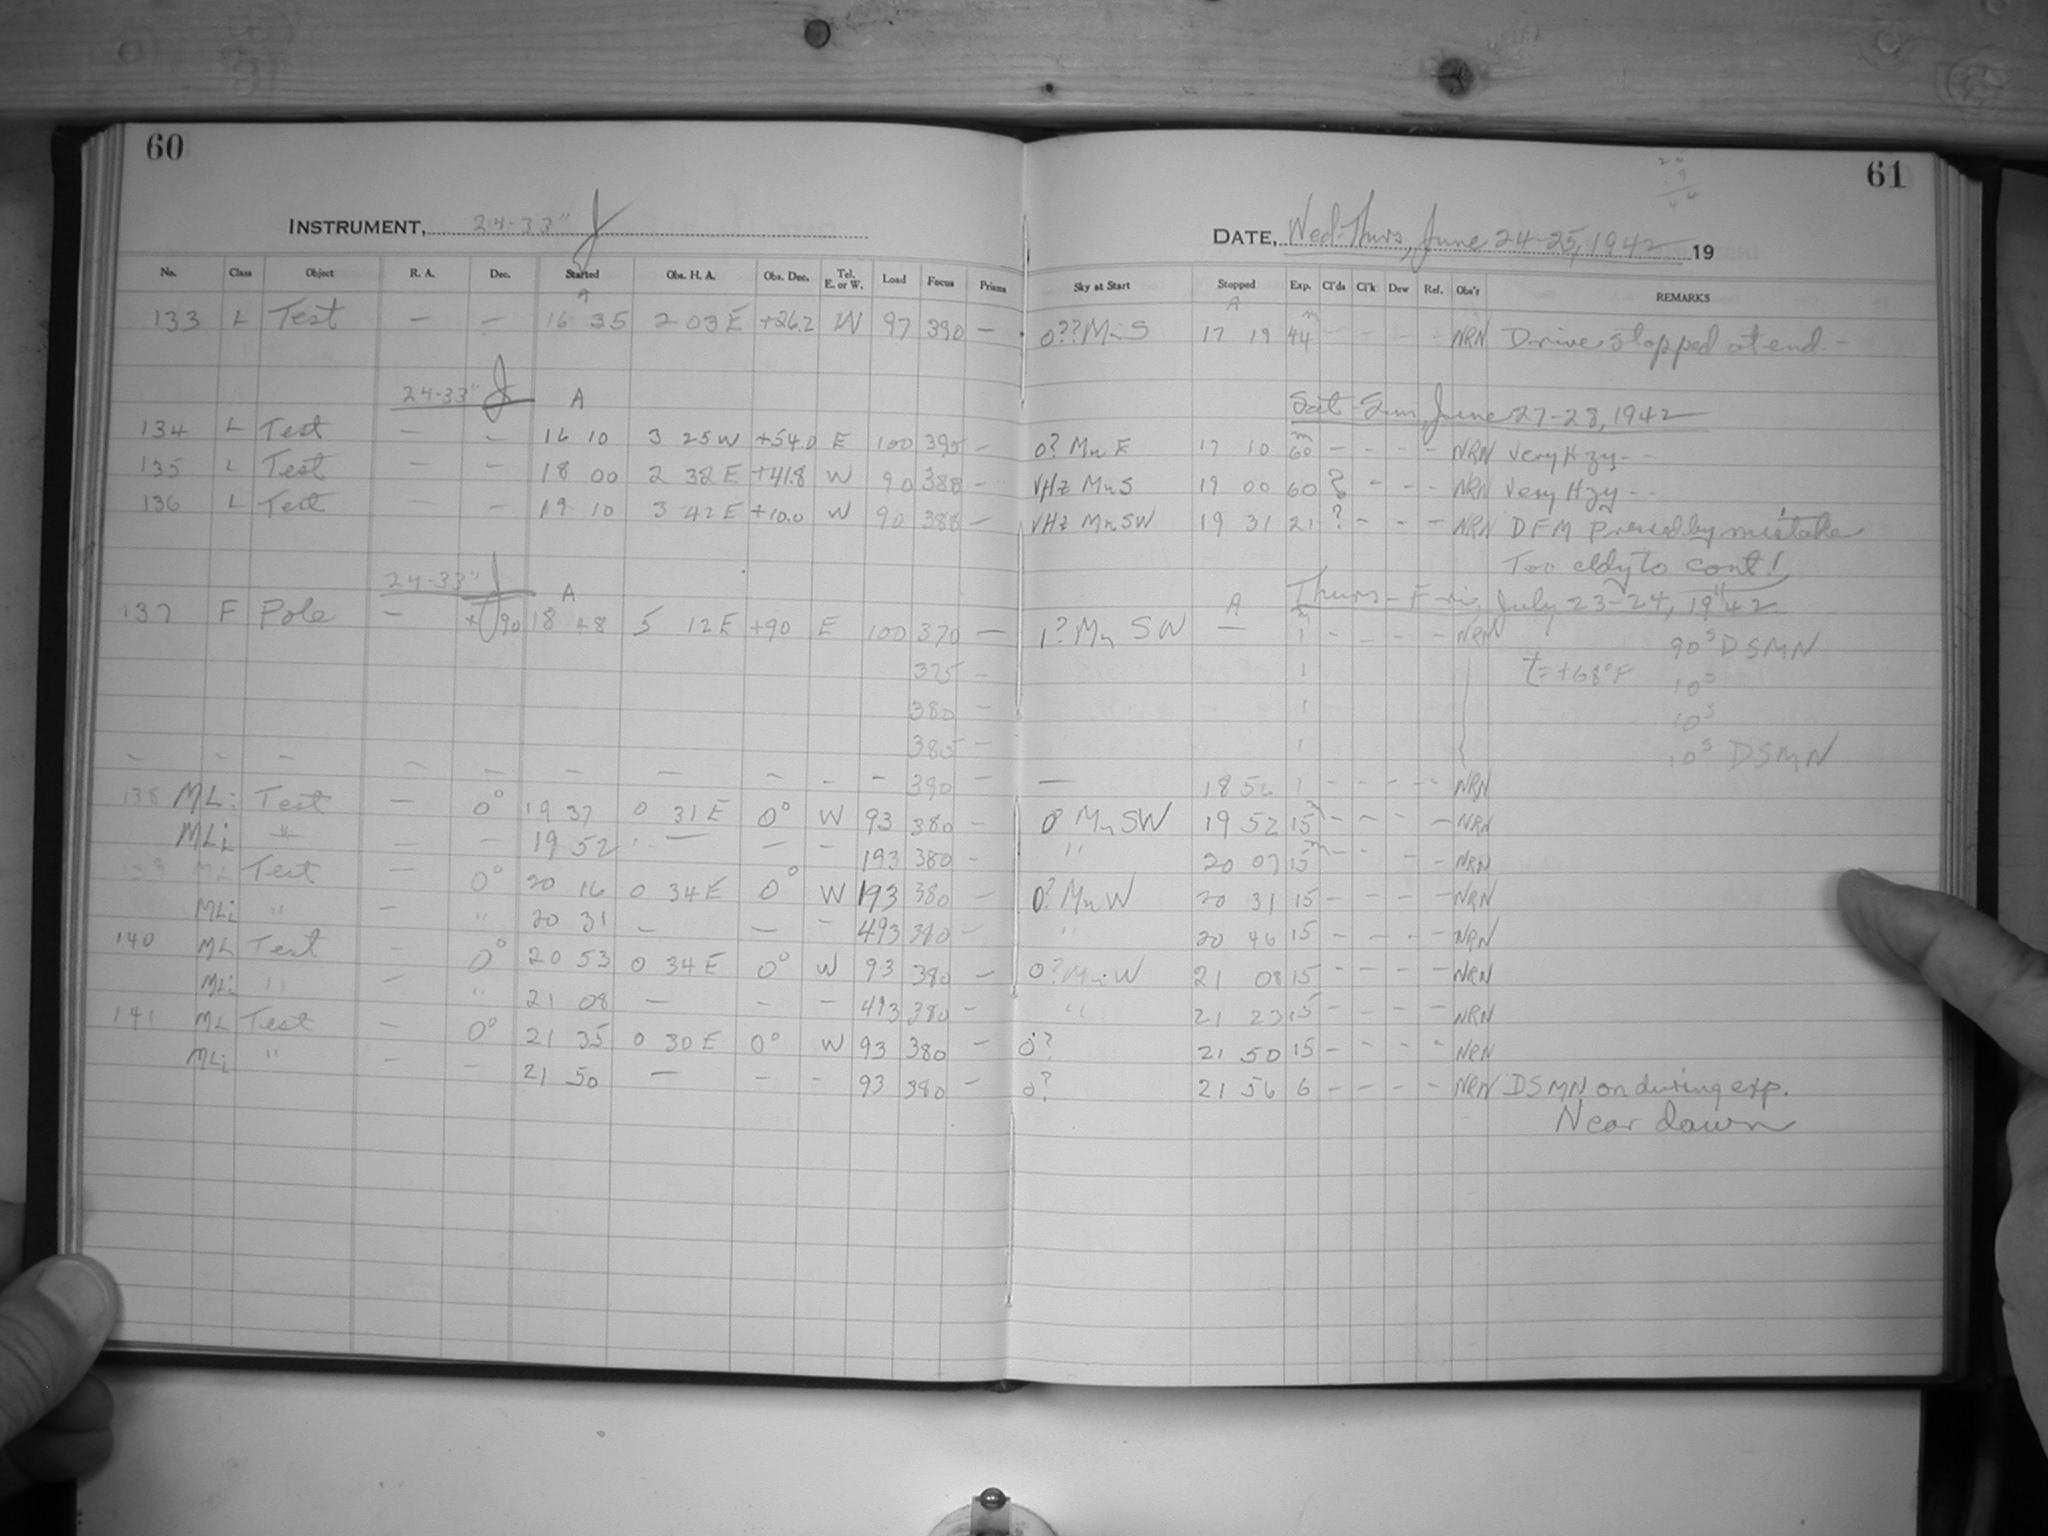 60
61
INSTRUMENT, 24-33" J
DATE, Wed-Thurs, June 24-25, 1942 19
No. Class Object R. A. Dec. Started Obs. H. A. Obs. Dec. Tel. E. or W. Load Focus Prisms Sky at Start Stopped Exp. Cl'ds Cl'k Dew Ref. Obs'r REMARKS
A A
133 L Test — — 16 35 2 03 E +26.2 W 97 390 — 0?? Mn S 17 19 44m - - - - NRN Drive stopped at end -
24-33" J A Sat-Sun, June 27-28, 1942
134 L Test — - 16 10 3 25 W +54.0 E 100 395 — 0? Mn E 17 10 60m - - - - NRN Very Hzy - -
135 L Test — — 18 00 2 38 E +41.8 W 90 388 — VHz Mn S 19 00 60 ? - - - NRN Very Hzy - -
136 L Test — 19 10 3 42 E +10.0 W 90 388 — VHz Mn SW 19 31 21 ? - - - NRN DFM pressed by mistake
Too cldy to cont!
24-33" J A A Thurs-Fri, July 23-24, 1942
137 F Pole — +90 18 48 5 12 E +90 E 100 370 — 1? Mn SW — 1m - - - - NRN 90s DSMN
375 — 1 t = +68°F 10s
380 — 1 10s
385 — 1 10s DSMN
- - - - - - - - - - 390 — — 18 56 1 - - - - NRN
138 MLi Test — 0° 19 37 0 31 E 0° W 93 380 — 0? Mn SW 19 52 15m - - - - NRN
MLi " — — 19 52 — — - 193 380 - " 20 07 15m - - - - NRN
139 ML Test — 0° 20 16 0 34 E 0° W 193 380 — 0? Mn W 20 31 15 - - - - NRN
MLi " — " 20 31 — — - 493 380 — " 20 46 15 - - - - NRN
140 ML Test - 0° 20 53 0 34 E 0° W 93 380 — 0? Mn W 21 08 15 - - - - NRN
MLi " — " 21 08 — - - 493 380 — " 21 23 15 - - - - NRN
141 ML Test — 0° 21 35 0 30 E 0° W 93 380 — 0? 21 50 15 - - - - NRN
MLi " - — 21 50 — - - 93 380 — 0? 21 56 6 - - - - NRN DSMN on during exp.
Near dawn